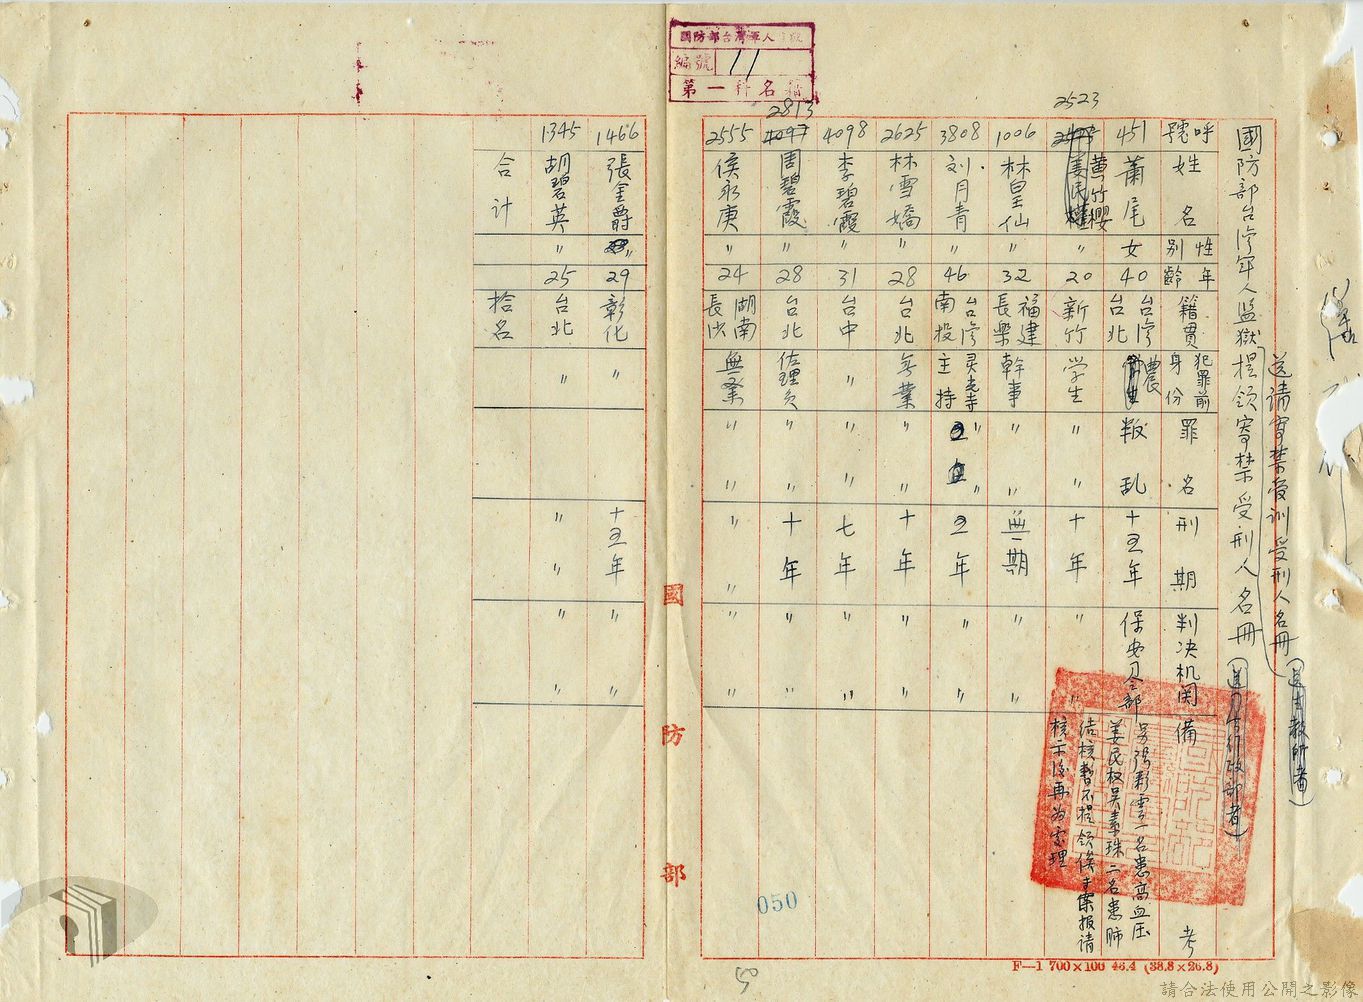 國防部台灣軍人監獄
編號 11
第一科名籍
送請寄禁受訓受刑人名冊
國防部台湾軍人監獄提領寄禁受刑人名冊
呼號 姓名 性別 年齡 籍貫 犯罪前身份 罪名 刑期 判决机関 備考
451 蕭尾 女 40 台湾台北 農 叛乱 十五年 保安司令部
2523 黄竹櫻 〃 20 新竹 学生 〃〃 十年 〃〃
1006 林呈仙 〃 32 福建長樂 幹事 〃〃 無期 〃〃
3808 刘月青 〃 46 台湾南投 灵光寺主持 〃〃 五年 〃〃
2625 林雪嬌 〃 28 台北 無業 〃〃 十年 〃〃
4098 李碧霞 〃 31 台中 〃 〃〃 七年 〃〃
2813 周碧霞 〃 28 台北 佐理員 〃〃 十年 〃〃
2555 侯永庚 〃 24 湖南長沙 無業 〃〃 〃〃 〃〃
另張彩雲一名患高血压
姜民权吴素珠二名患肺
结核暫不提領俟專案报請
核示後再为處理
1466 張金爵 〃 29 彰化 〃 十五年 〃〃
1345 胡碧英 〃 25 台北 〃 〃〃 〃〃
合計 拾名
國防部
050
50
F—1 700×100 46.4 (38.8×26.8)
請合法使用公開之影像